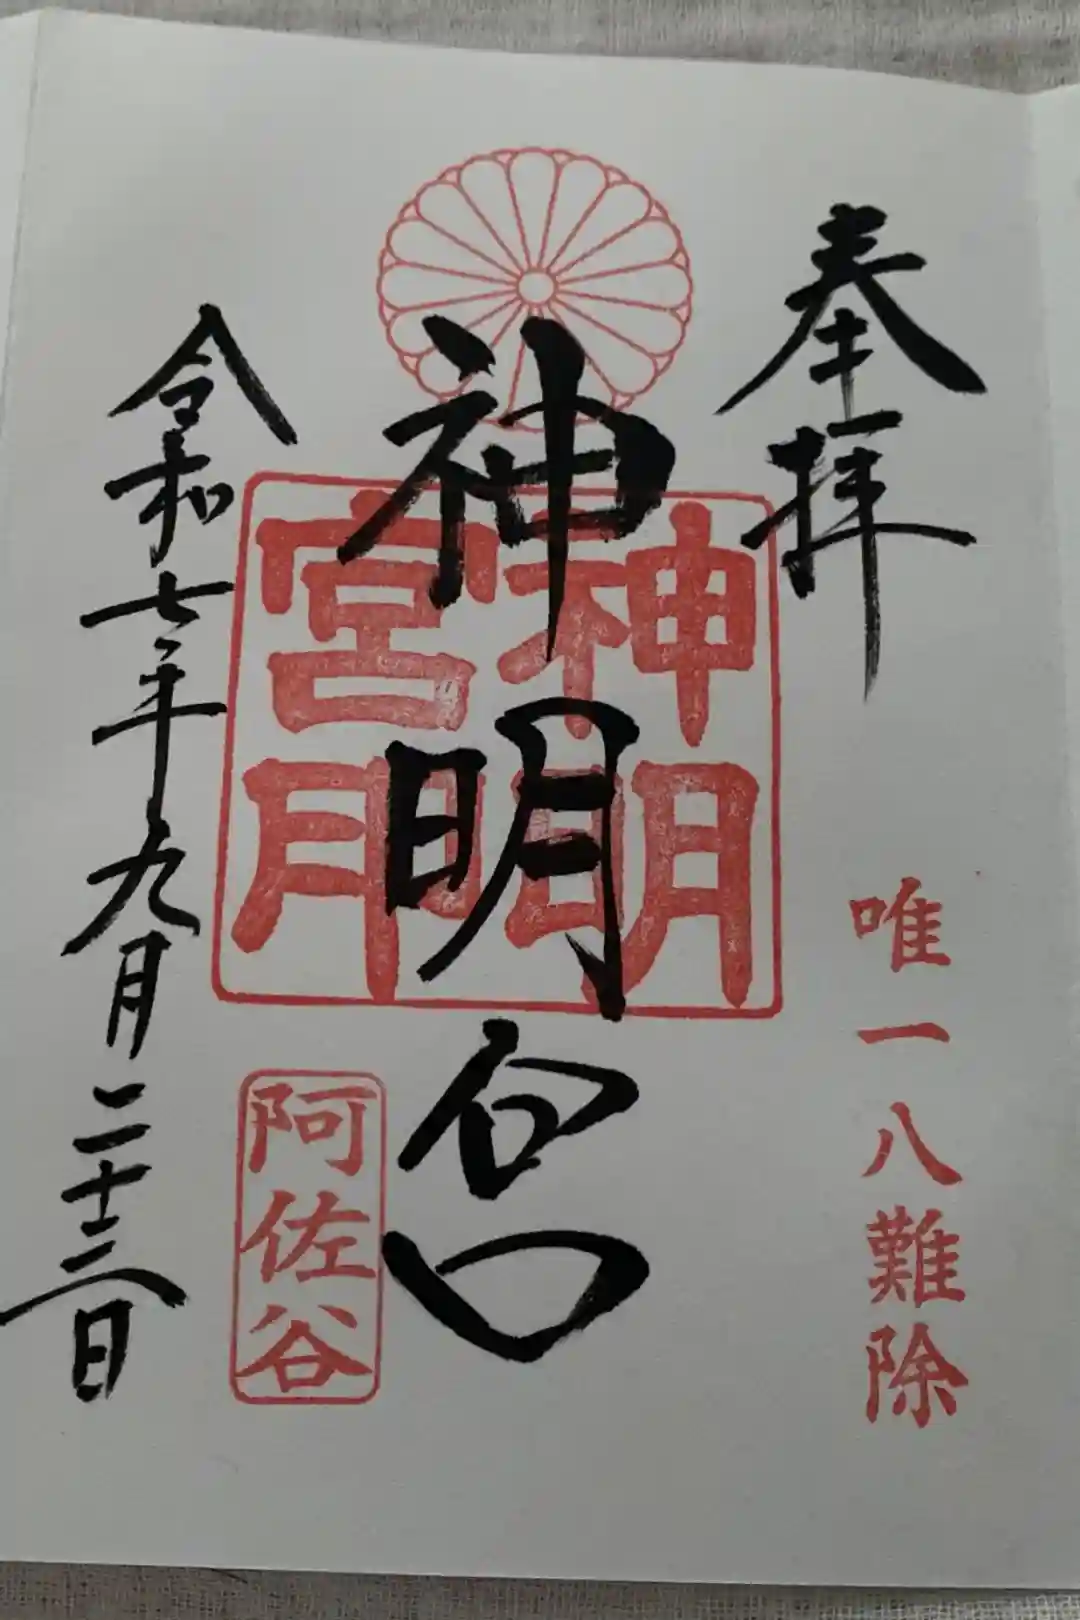 奉拝
唯一八難除
神明宮
神明
宮
阿佐谷
令和七年九月二十三日